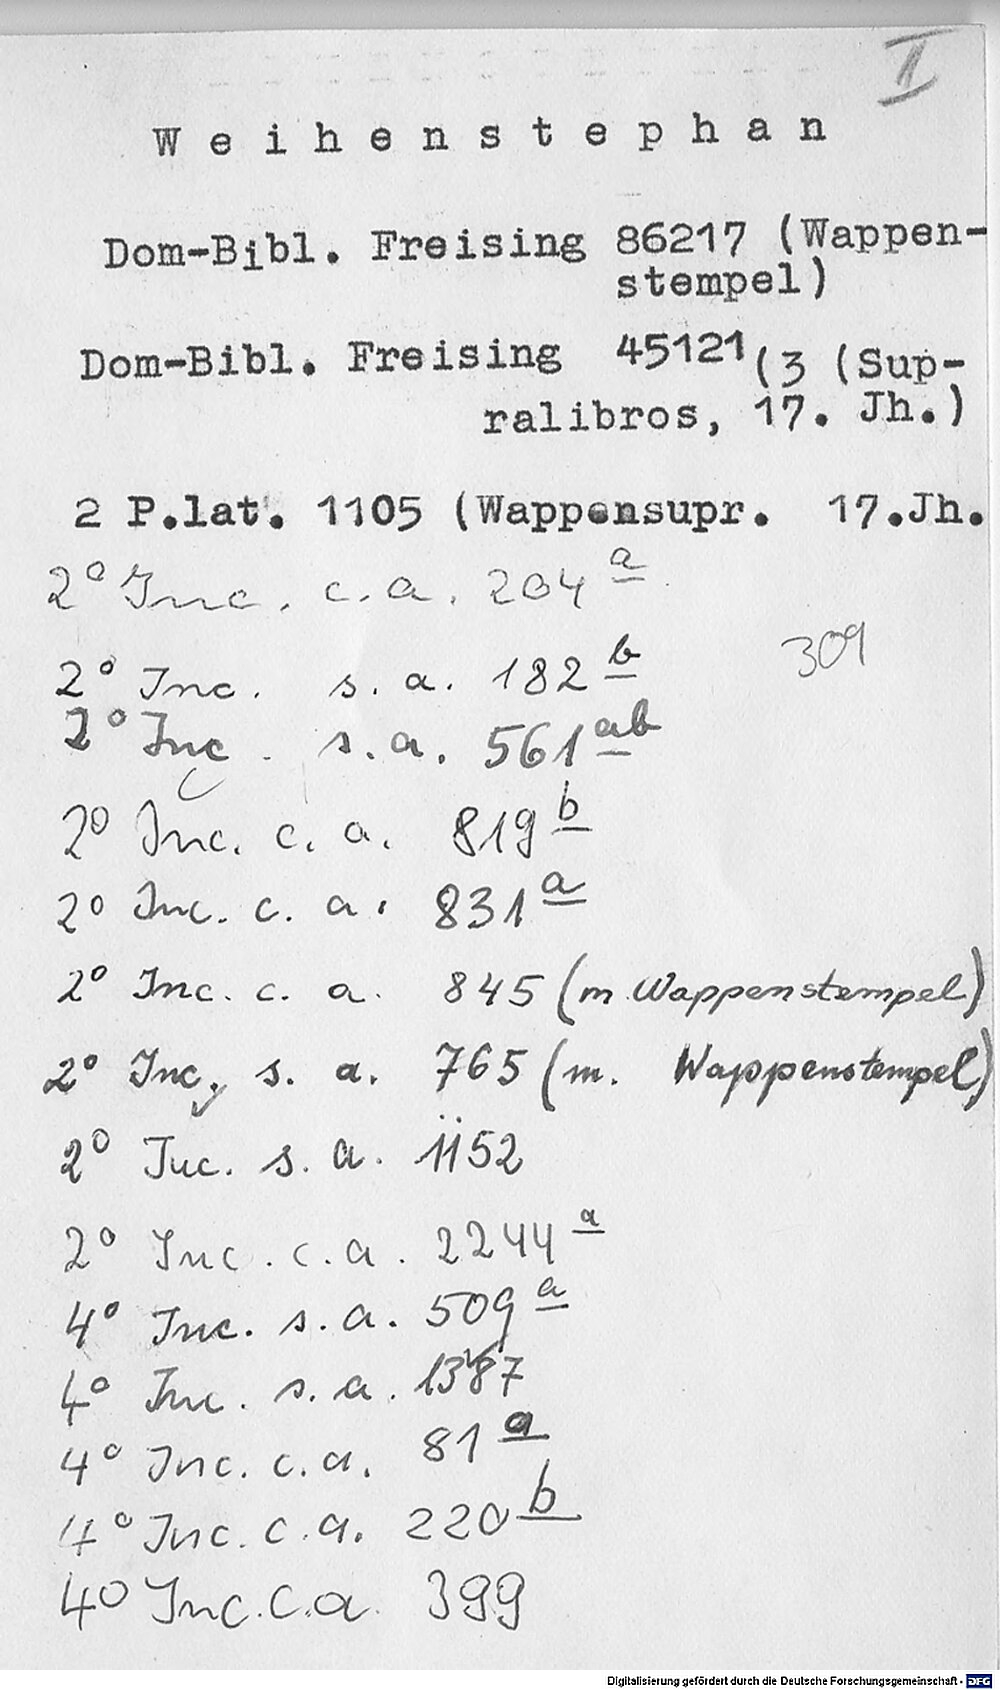 II
Weihenstephan
Dom-Bibl. Freising 86217 (Wappen-
stempel)
Dom-Bibl. Freising 45121(3 (Sup-
ralibros, 17. Jh.)
2 P.lat. 1105 (Wappensupr. 17.Jh.
2° Inc. c.a. 204 a
309
2° Inc. s.a. 182 b
2° Inc. s.a. 561 ab
2° Inc. c.a. 819 b
2° Inc. c.a. 831 a
2° Inc. c.a. 845 (m Wappenstempel)
2° Inc. s.a. 765 (m. Wappenstempel)
2° Inc. s.a. 1152
2° Inc. c.a. 2244 a
4° Inc. s.a. 509 a
4° Inc. s.a. 1387
4° Inc. c.a. 81 a
4° Inc. c.a. 220 b
4° Inc. c.a. 399
Digitalisierung gefördert durch die Deutsche Forschungsgemeinschaft - DFG